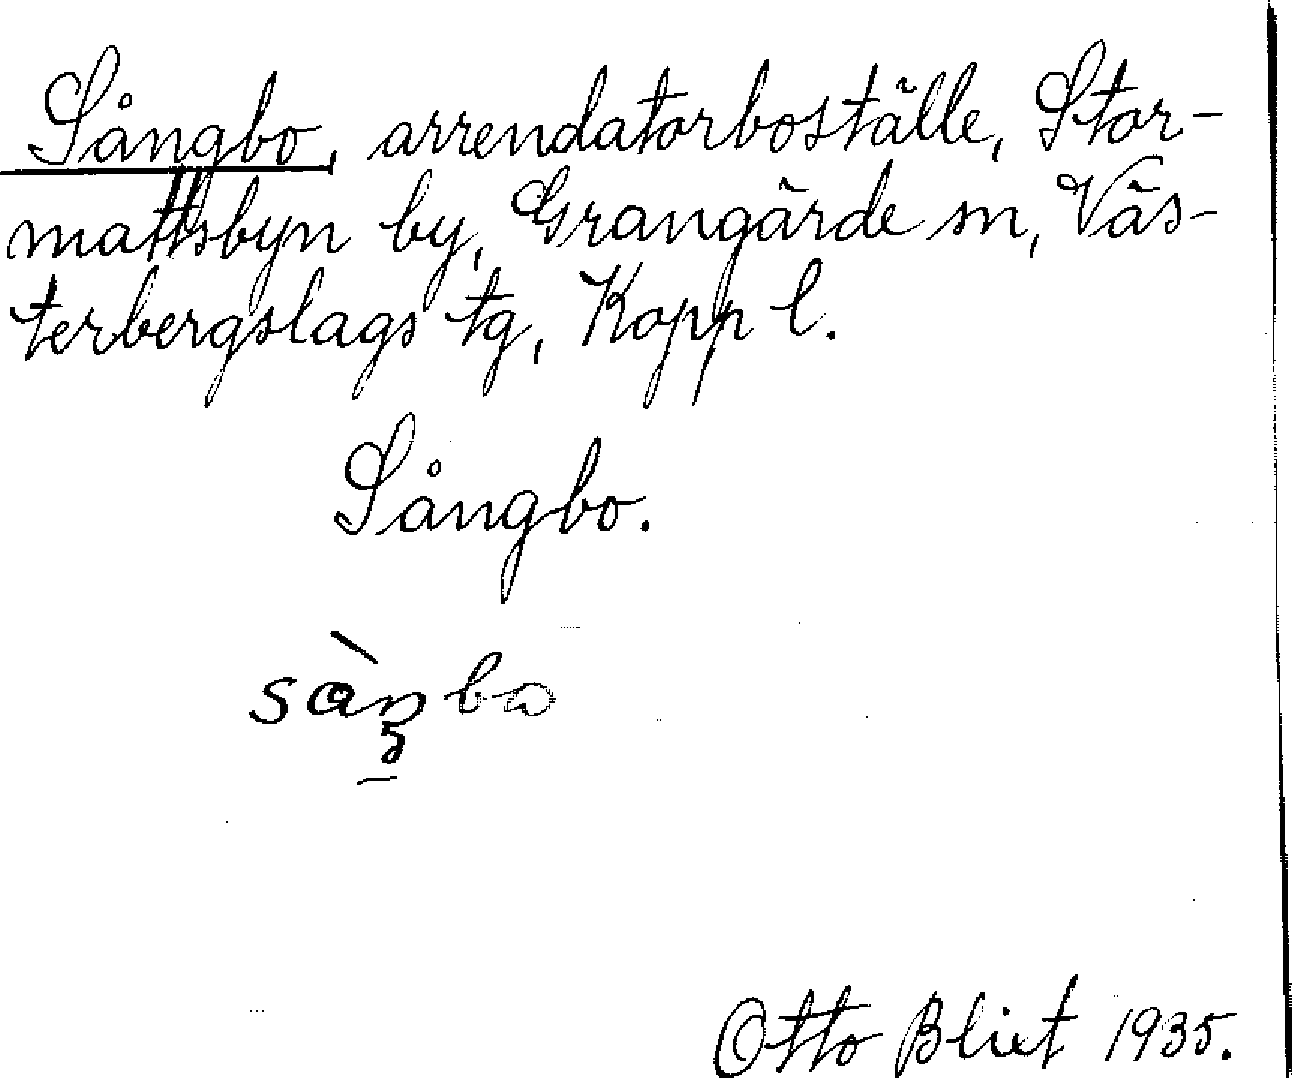 Sångbo, arrendatorboställe, Stor-
mattsbyn by, Grangärde sn, Väs-
terbergslags tg, Kopp l.
Sångbo.
Otto Blixt 1935.